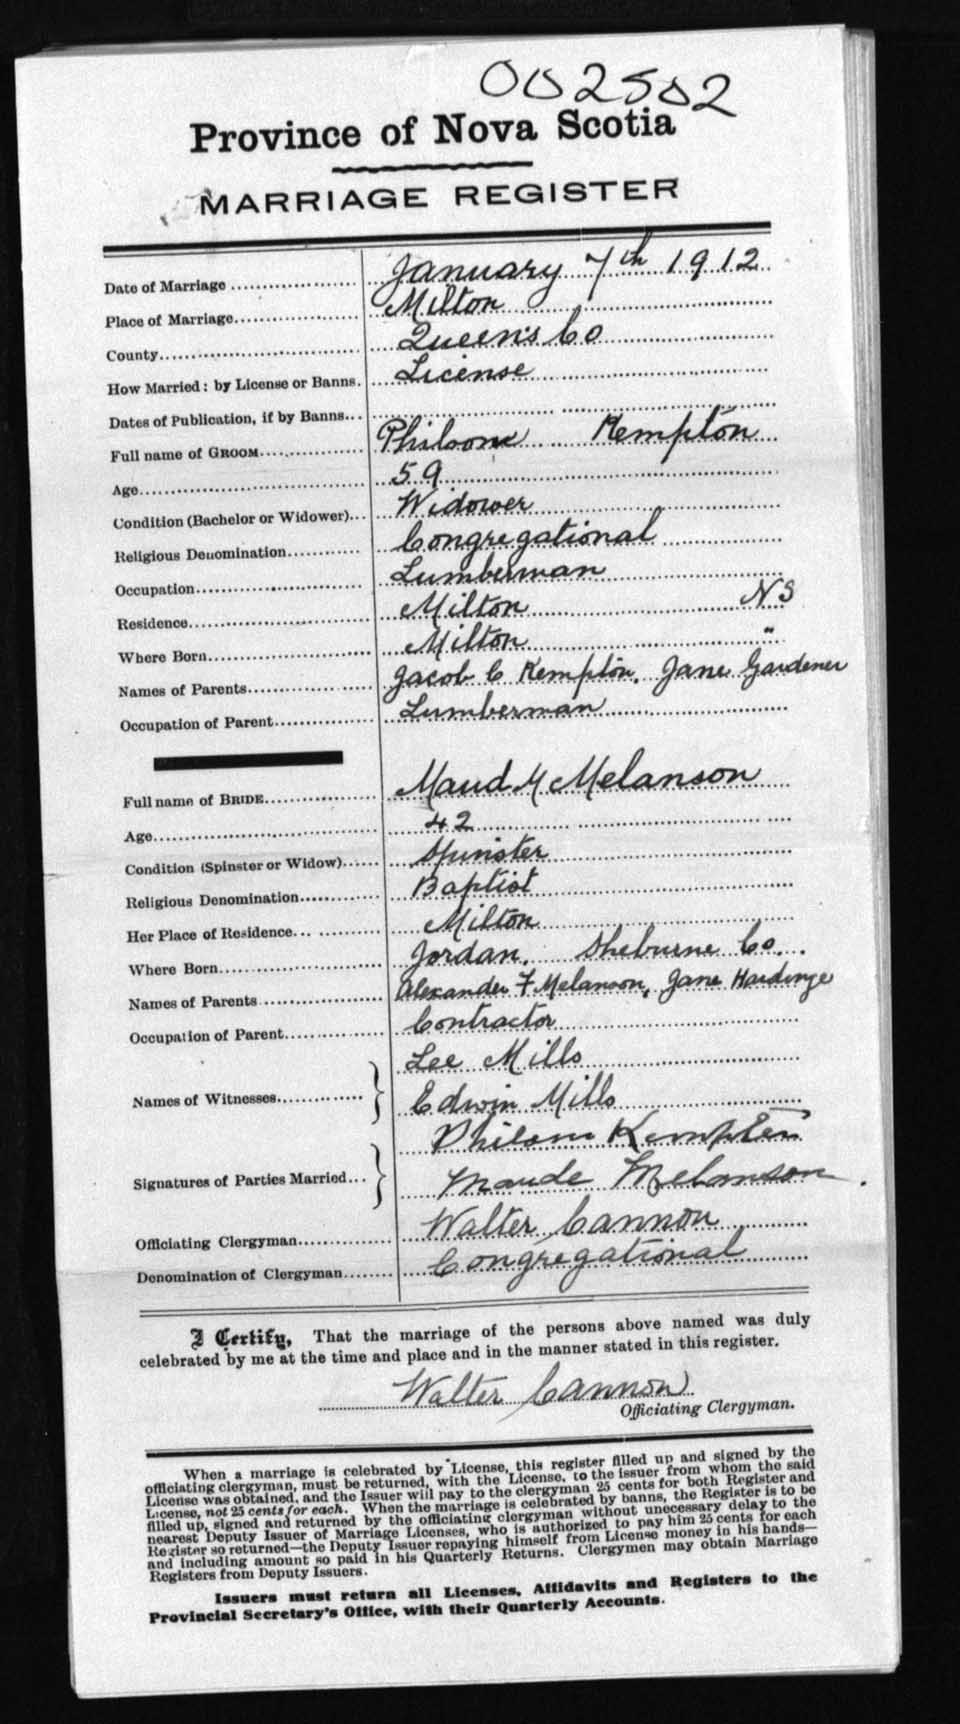 002502
Province of Nova Scotia
MARRIAGE REGISTER
Date of Marriage January 7th 1912
Place of Marriage Milton
County Queen's Co
How Married: by License or Banns. License
Dates of Publication, if by Banns
Full name of GROOM Philsom Kempton
Age 59
Condition (Bachelor or Widower) Widower
Religious Denomination Congregational
Occupation Lumberman
Residence Milton NS
Where Born Milton "
Names of Parents Jacob C Kempton, Jane Gardener
Occupation of Parent Lumberman
Full name of BRIDE Maud M Melanson
Age 42
Condition (Spinster or Widow) Spinster
Religious Denomination Baptist
Her Place of Residence Milton
Where Born Jordan. Sheburne Co.
Names of Parents Alexander F Melanson, Jane Hardinge
Occupation of Parent Contractor
Names of Witnesses Lee Mills
Edwin Mills
Signatures of Parties Married Philsom Kempton
Maude Melanson.
Officiating Clergyman Walter Cannon
Denomination of Clergyman Congregational
I Certify, That the marriage of the persons above named was duly
celebrated by me at the time and place and in the manner stated in this register.
Walter Cannon
Officiating Clergyman.
When a marriage is celebrated by License, this register filled up and signed by the
officiating clergyman, must be returned, with the License, to the issuer from whom the said
License was obtained, and the Issuer will pay to the clergyman 25 cents for both Register and
License, not 25 cents for each. When the marriage is celebrated by banns, the Register is to be
filled up, signed and returned by the officiating clergyman without unnecessary delay to the
nearest Deputy Issuer of Marriage Licenses, who is authorized to pay him 25 cents for each
Register so returned—the Deputy Issuer repaying himself from License money in his hands—
and including amount so paid in his Quarterly Returns. Clergymen may obtain Marriage
Registers from Deputy Issuers.
Issuers must return all Licenses, Affidavits and Registers to the
Provincial Secretary's Office, with their Quarterly Accounts.